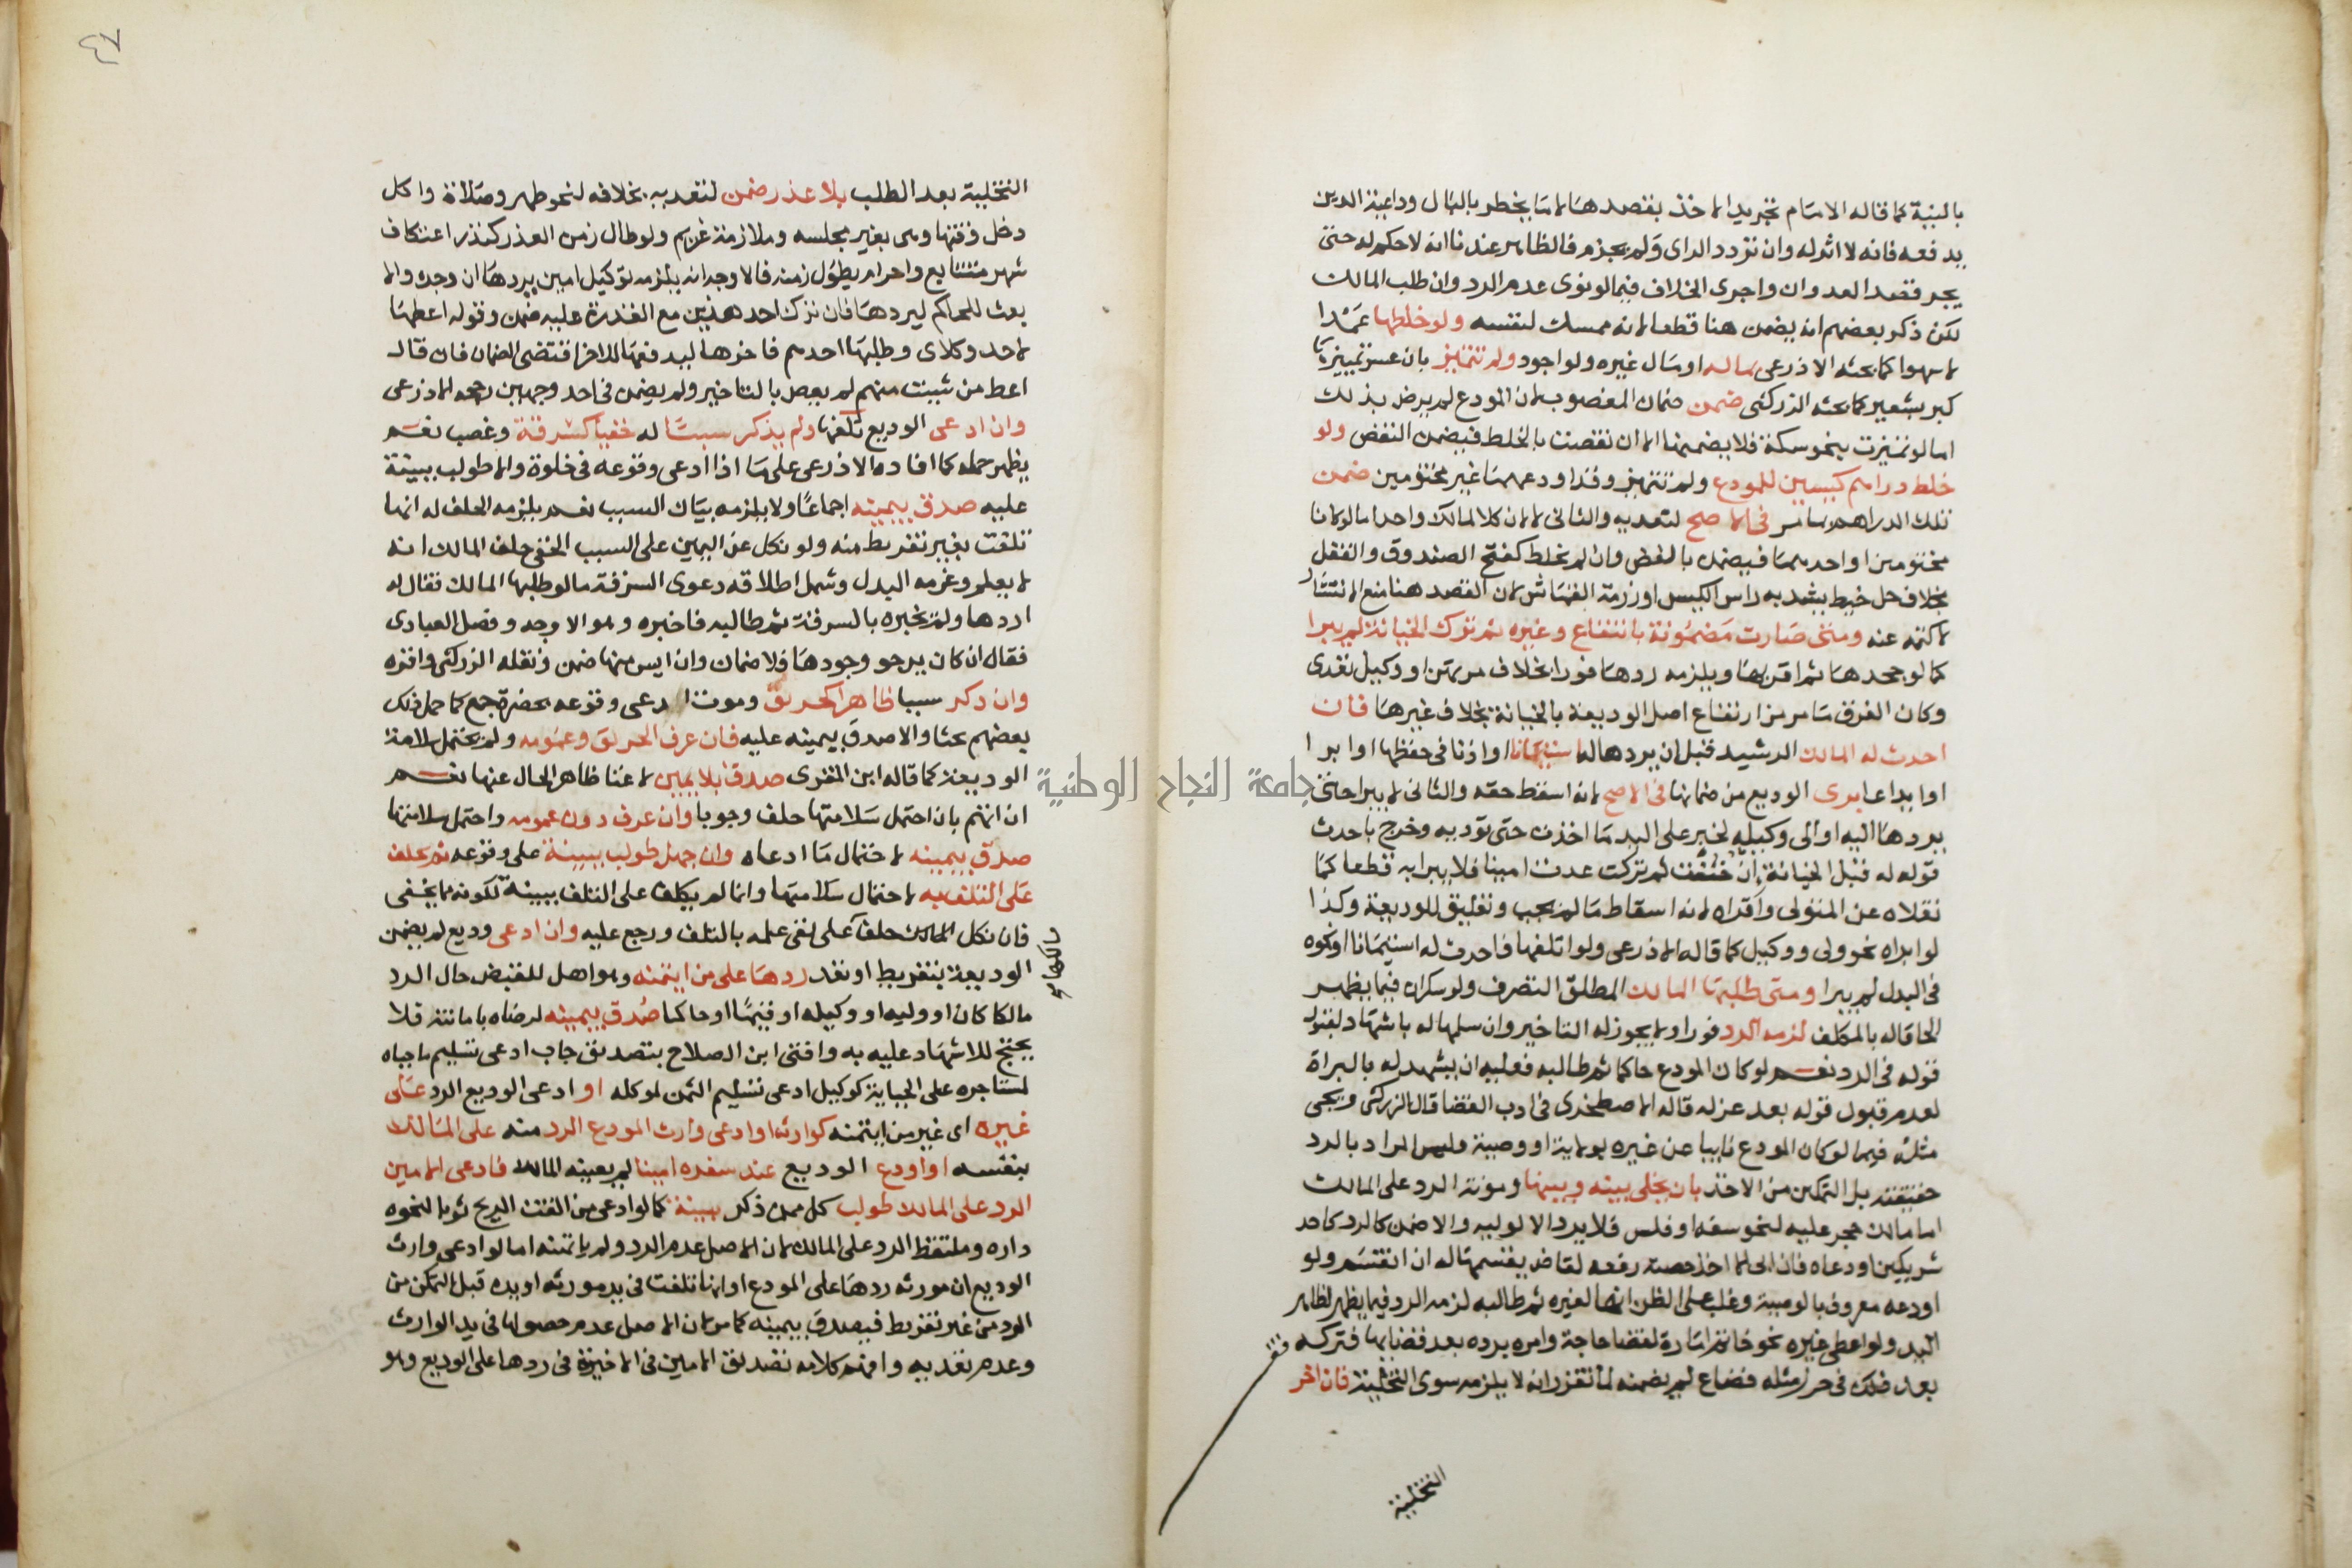 بالنية كما قاله الامام تجريد الاخذ بقصدها لاما يخطر بالبال وداعية الدين
يدفعه فانه لا اثر له وان تردد الراى ولم يجزم فالظاهر عندنا انه لا حكم له حتى
يجرد قصد العدوان واجرى الخلاف فيما لو نوى عدم الرد وان طلب المالك
لكن ذكر بعضهم انه يضمن هنا قطعا لانه ممسك لنفسه ولو خلطها عمدا
لا سهوا كما بحثه الاذرعى بماله او مال غيره ولو اجود ولم تتميز بان عسر تمييزها
كبر بشعير كما بحثه الزركشى ضمن ضمان المغصوب لان المودع لم يرض بذلك
اما لو تميزت بنحو سكة فلا يضمنها الا ان نقصت بالخلط فيضمن النقص ولو
خلط دراهم كيسين للمودع ولم تتميز وقد اودعهما غير مختومين ضمن
تلك الدراهم بما مر فى الاصح لتعديه والثانى لا لان كلا لمالك واحد اما لو كانا
مختومين او احدهما فيضمن بالفض وان لم يخلط كفتح الصندوق والقفل
بخلاف حل خيط يشد به راس الكيس او رزمة القماش لان القصد هنا منع الانتشار
لا كتمه عنه ومتى صارت مضمونة بانتفاع وغيره ثم ترك الخيانة لم يبرا
كما لو جحدها ثم اقر بها ويلزمه ردها فورا بخلاف مرتهن او وكيل تعدى
وكان الفرق ما مر من ارتفاع اصل الوديعة بالخيانة بخلاف غيرها فان
احدث له المالك الرشيد قبل ان يردها له استئمانا او اذنا فى حفظها او ابرا
او ايداعا برى الوديع من ضمانها فى الاصح لانه اسقط حقه والثانى لا يبرا حتى
يردها اليه او الى وكيله لخبر على اليد ما اخذت حتى تؤديه وخرج باحدث
قوله له قبل الخيانة ان خنت ثم تركت عدت امينا فلا يبرا به قطعا كما
نقلاه عن المتولى واقراه لانه اسقاط ما لم يجب وتعليق للوديعة وكذا
لو ابراه نحو ولى ووكيل كما قاله الاذرعى ولو اتلفها فاحدث له استئمانا او نحوه
فى البدل لم يبرا ومتى طلبها المالك المطلق التصرف ولو سكران فيما يظهر
الحاقا له بالمكلف لزمه الرد فورا ولا يجوز له التاخير وان سلمها له باشهاد لقبول
قوله فى الرد نعم لو كان المودع حاكما ثم طالبه فعليه ان يشهد له بالبراة
لعدم قبول قوله بعد عزله قاله الاصطخرى فى ادب القضا قال الزركشى ويجى
مثله فيما لو كان المودع نايبا عن غيره بولاية او وصية وليس المراد بالرد
حقيقته بل التمكين من الاخذ بان يخلى بينه وبينها ومونة الرد على المالك
اما مالك حجر عليه لنحو سفه او فلس فلا يرد الا لوليه والا ضمن كالرد لاحد
شريكين اودعاه فان ابى الا اخذ حصته رفعه لقاض يقسمها له ان انقسم ولو
اودعه معروف بالوصية وغلب على الظن انها لغيره ثم طالبه لزمه الرد فيما يظهر لظاهر
اليد ولو اعطى غيره نحو خاتم امارة لقضا حاجة وامره برده بعد قضايها فتركه
بعد ذلك فى حرز مثله فضاع لم يضمنه لما تقرر انه لا يلزمه سوى التخلية فان اخر
التخلية
التخلية بعد الطلب بلا عذر ضمن لتعديه بخلافه لنحو طهر وصلاة واكل
دخل وقتها وهى بغير مجلسه وملازمة غريم ولو طال زمن العذر كنذر اعتكاف
شهر متتابع واحرام يطول زمنه فالاوجه انه يلزمه توكيل امين يردها ان وجده والا
بعث للحاكم ليردها فان ترك احد هذين مع القدرة عليه ضمن وقوله اعطها
لاحد وكلاى وطلبها احدهم فاخرها ليدفعها للاخر اقتضى الضمان فان قال
اعط من شيت منهم لم يعص بالتاخير ولم يضمن فى احد وجهين رجحه الاذرعى
وان ادعى الوديع تلفها ولم يذكر سببا له خفيا كسرقة وغصب نعم
يظهر حمله كما افاده الاذرعى على ما اذا ادعى وقوعه فى خلوة والا طولب ببينة
عليه صدق بيمينه اجماعا ولا يلزمه بيان السبب نعم يلزمه الحلف له انها
تلفت بغير تفريط منه ولو نكل عن اليمين على السبب الخفى حلف المالك انه
لا يعلم وغرمه البدل وشمل اطلاقه دعوى السرقة ما لو طلبها المالك فقال له
اردها ولم يخبره بالسرقة ثم طالبه فاخبره وهو الاوجه وفصل العبادى
فقال ان كان يرجو وجودها فلا ضمان وان ايس منها ضمن ونقله الزركشى واقره
وان ذكر سببا ظاهرا كحريق وموت ادعى وقوعه بحضرة جمع كما حمل ذلك
بعضهم بحثا والا صدق بيمينه عليه فان عرف الحريق وعمومه ولم يحتمل سلامة
الوديعة كما قاله ابن المقرى صدق بلا يمين لاغنا ظاهر الحال عنها نعم
ان اتهم بان احتمل سلامتها حلف وجوبا وان عرف دون عمومه واحتمل سلامتها
صدق بيمينه لاحتمال ما ادعاه وان جهل طولب ببينة على وقوعه ثم يحلف
على التلف به لاحتمال سلامتها وانما لم يكلف على التلف ببينة لكونه مما يخفى
فان نكل المالك حلف على نفى علمه بالتلف ورجع عليه وان ادعى وديع لم يضمن
الوديعة بتفريط او تعد ردها على من ايتمنه وهو اهل للقبض حال الرد
مالكا كان او وليه او وكيله او قيما او حاكما صدق بيمينه لرضاه بامانته فلا
يحتج للاشهاد عليه به وافتى ابن الصلاح بتصديق جاب ادعى تسليم ما جباه
لمستاجره على الجباية كوكيل ادعى تسليم الثمن لموكله او ادعى الوديع الرد على
غيره اى غير من ايتمنه كوارثه او ادعى وارث المودع الرد منه على المالك
بنفسه او اودع الوديع عند سفره امينا لم يعينه المالك فادعى الامين
الرد على المالك طولب كل ممن ذكر ببينة كما لو ادعى من القت الريح ثوبا لنحوه
داره وملتقط الرد على المالك لان الاصل عدم الرد ولم ياتمنه اما لو ادعى وارث
الوديع ان مورثه ردها على المودع او انها تلفت فى يد مورثه او يده قبل التمكن من
الرد من غير تفريط فيصدق بيمينه كما مر لان الاصل عدم حصولها فى يد الوارث
وعدم تعديه وافهم كلامه تصديق الامين فى الاخيرة فى ردها على الوديع وهو
جامعة النجاح الوطنية